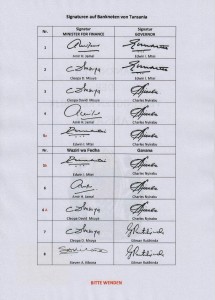 Signaturen auf Banknoten von Tansania
Nr. Signatur Signatur
MINISTER FOR FINANCE GOVERNOR
1
Amir H. Jamal Edwin I. Mtei
2
Cleopa David Msuya Edwin I. Mtei
3
Cleopa David Msuya Charles Nyirabu
4
Amir H. Jamal Charles Nyirabu
Edwin I. Mtei Charles Nyirabu
Nr. Waziri wa Fedha Gavana
Edwin I. Mtei Charles Nyirabu
6
Amir H. Jamal Charles Nyirabu
Cleopa David Msuya Charles Nyirabu
7
Cleopa D. Msuya Gilman Rutihinda
8
Steven A. Kibona Gilman Rutihinda
BITTE WENDEN